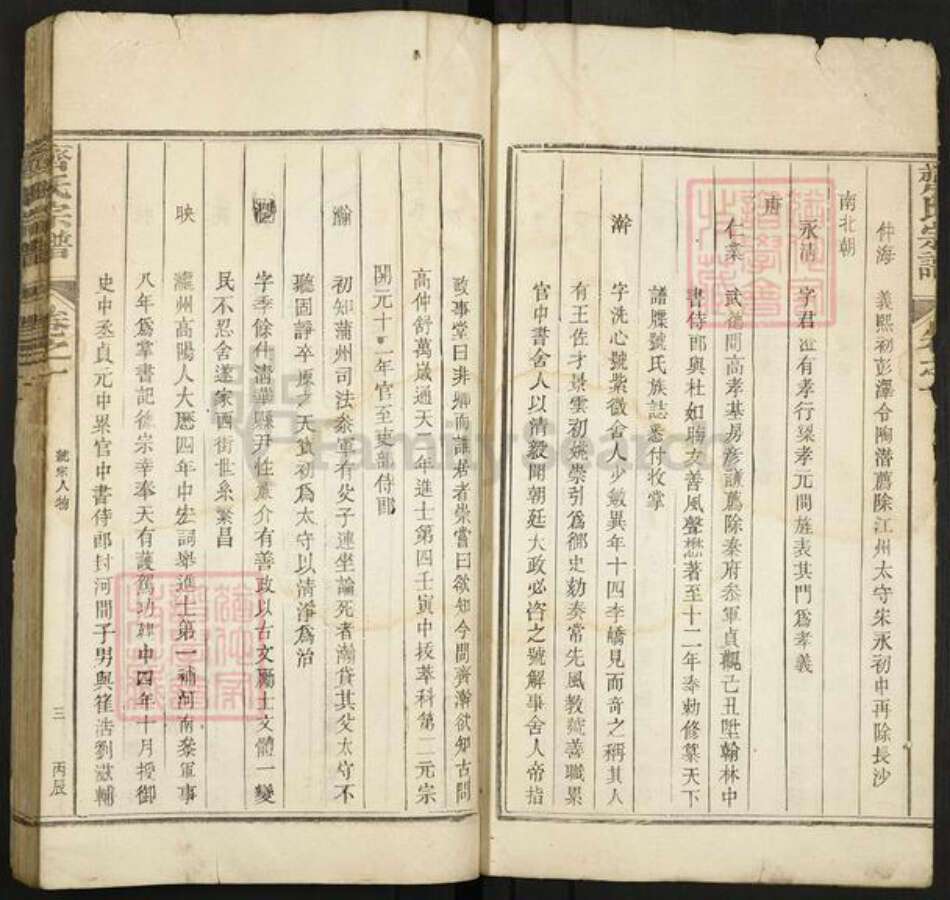 齊氏宗譜
仲海 義熙初彭澤令陶潜薦除江州太守朱永初中再除長沙
南北朝
永清 字君 有孝行梁孝元間旌表其門爲孝義
唐
仁業 武德間高孝基房彦謙薦除秦府叅軍貞觀己丑陞翰林中
書侍郎與杜如晦友善風聲懋著至十二年奉勅修纂天下
譜牒號氏族誌悉付收掌
澣 字洗心號紫微舍人少敏異年十四李嶠見而奇之稱其人
有王佐才景雲初姚崇引爲御史劾奏常先風教號善職累
官中書舍人以清毅聞朝廷大政必咨之號解事舍人帝指
政事堂曰非卿而誰居者崇嘗曰欲知今問齊澣欲知古問
高仲舒萬歲通天二年進士第四壬寅中拔萃科第二元宗
開元十一年官至吏部侍郎
瀚 初知蒲州司法叅軍有父子連坐論死者瀚貸其父太守不
聽固諍卒原之天寶初爲太守以清淨爲治
字季餘仕清 縣尹性 介有善政以古文勵士文體一變
民不忍舍遂家西街世系繁昌
映 瀛州高陽人大歷四年中宏詞舉進士第一補河南叅軍事
八年爲掌書記德宗幸奉天有護駕功興中四年十月授御
史中丞貞元中累官中書侍郎封河間子男與崔浩劉滋輔
齊氏宗譜
卷之一
號宗人物
三
丙辰
FamilySearch